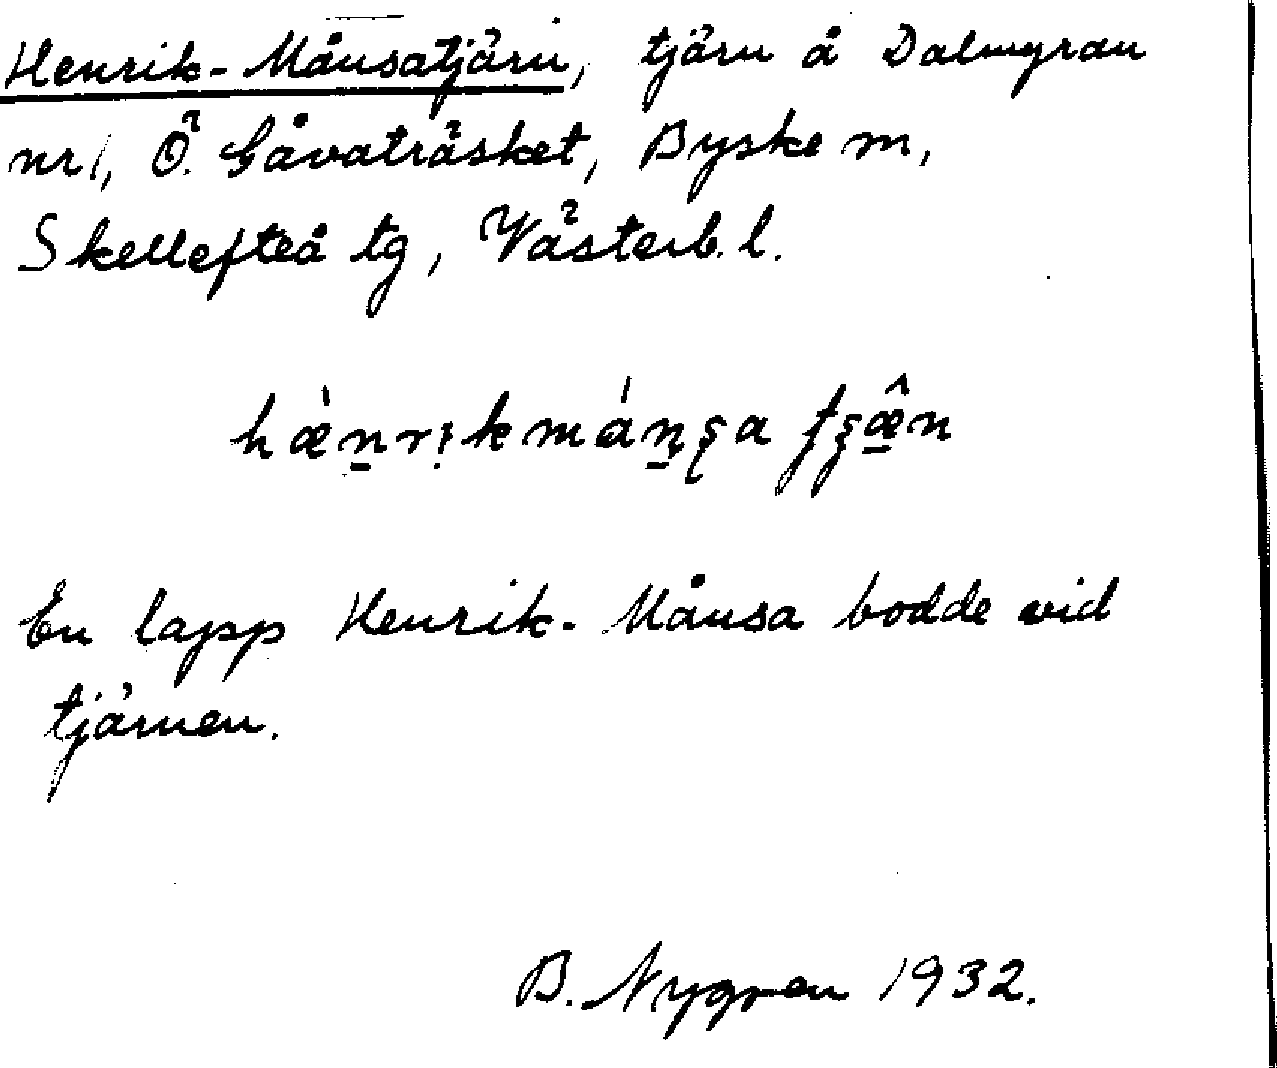 Henrik-Månsatjärn, tjärn å Dalmyran
nr 1, Ö. Gåvaträsket, Byske sn,
Skellefteå tg, Västerb. l.
En lapp Henrik-Månsa bodde vid
tjärnen.
B. Nygren 1932.